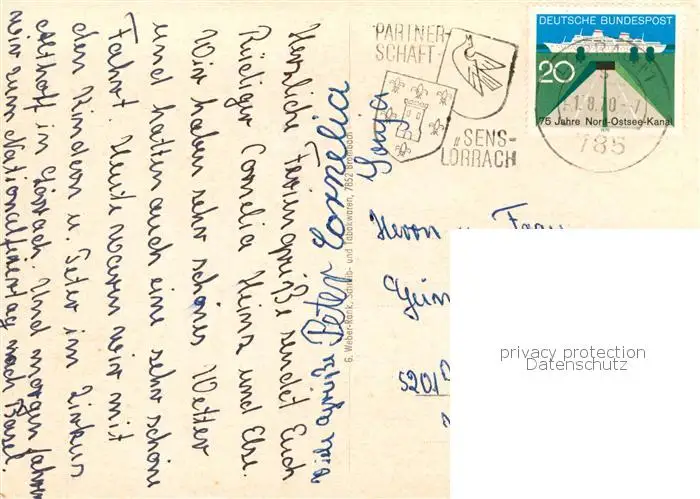 Herzliche Feriengrüße sendet Euch
Rüdiger Cornelia Heinz und Else.
Wir haben sehr schönes Wetter
und hatten auch eine sehr schöne
Fahrt. Heute waren wir mit
den Kindern u. Peter im Zirkus
Althoff in Lörrach. Und morgen fahren
wir zum Nationalfeiertag nach Basel.
Viele Grüße Peter Cornelia
Sonja
G. Weber-Rank, Sanitär- und Tabakwaren, 7852 Brombach
PARTNER-
SCHAFT
SENS-
LÖRRACH
DEUTSCHE BUNDESPOST
20
75 Jahre Nord-Ostsee-Kanal
-1.8.70-
785
Herrn u. Frau
5201
privacy protection
Datenschutz